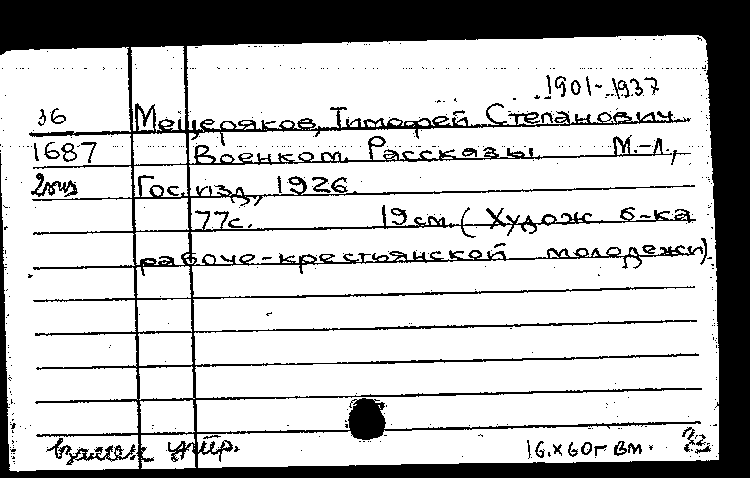 1901-1937
36 Мещеряков, Тимофей Степанович
1687 Военком. Рассказы. М.-Л.,
2экз Гос. изд., 1926.
77с. 19см. (Худож б-ка
рабоче-крестьянской молодежи)
взамен утр.
16.X 60г вм.